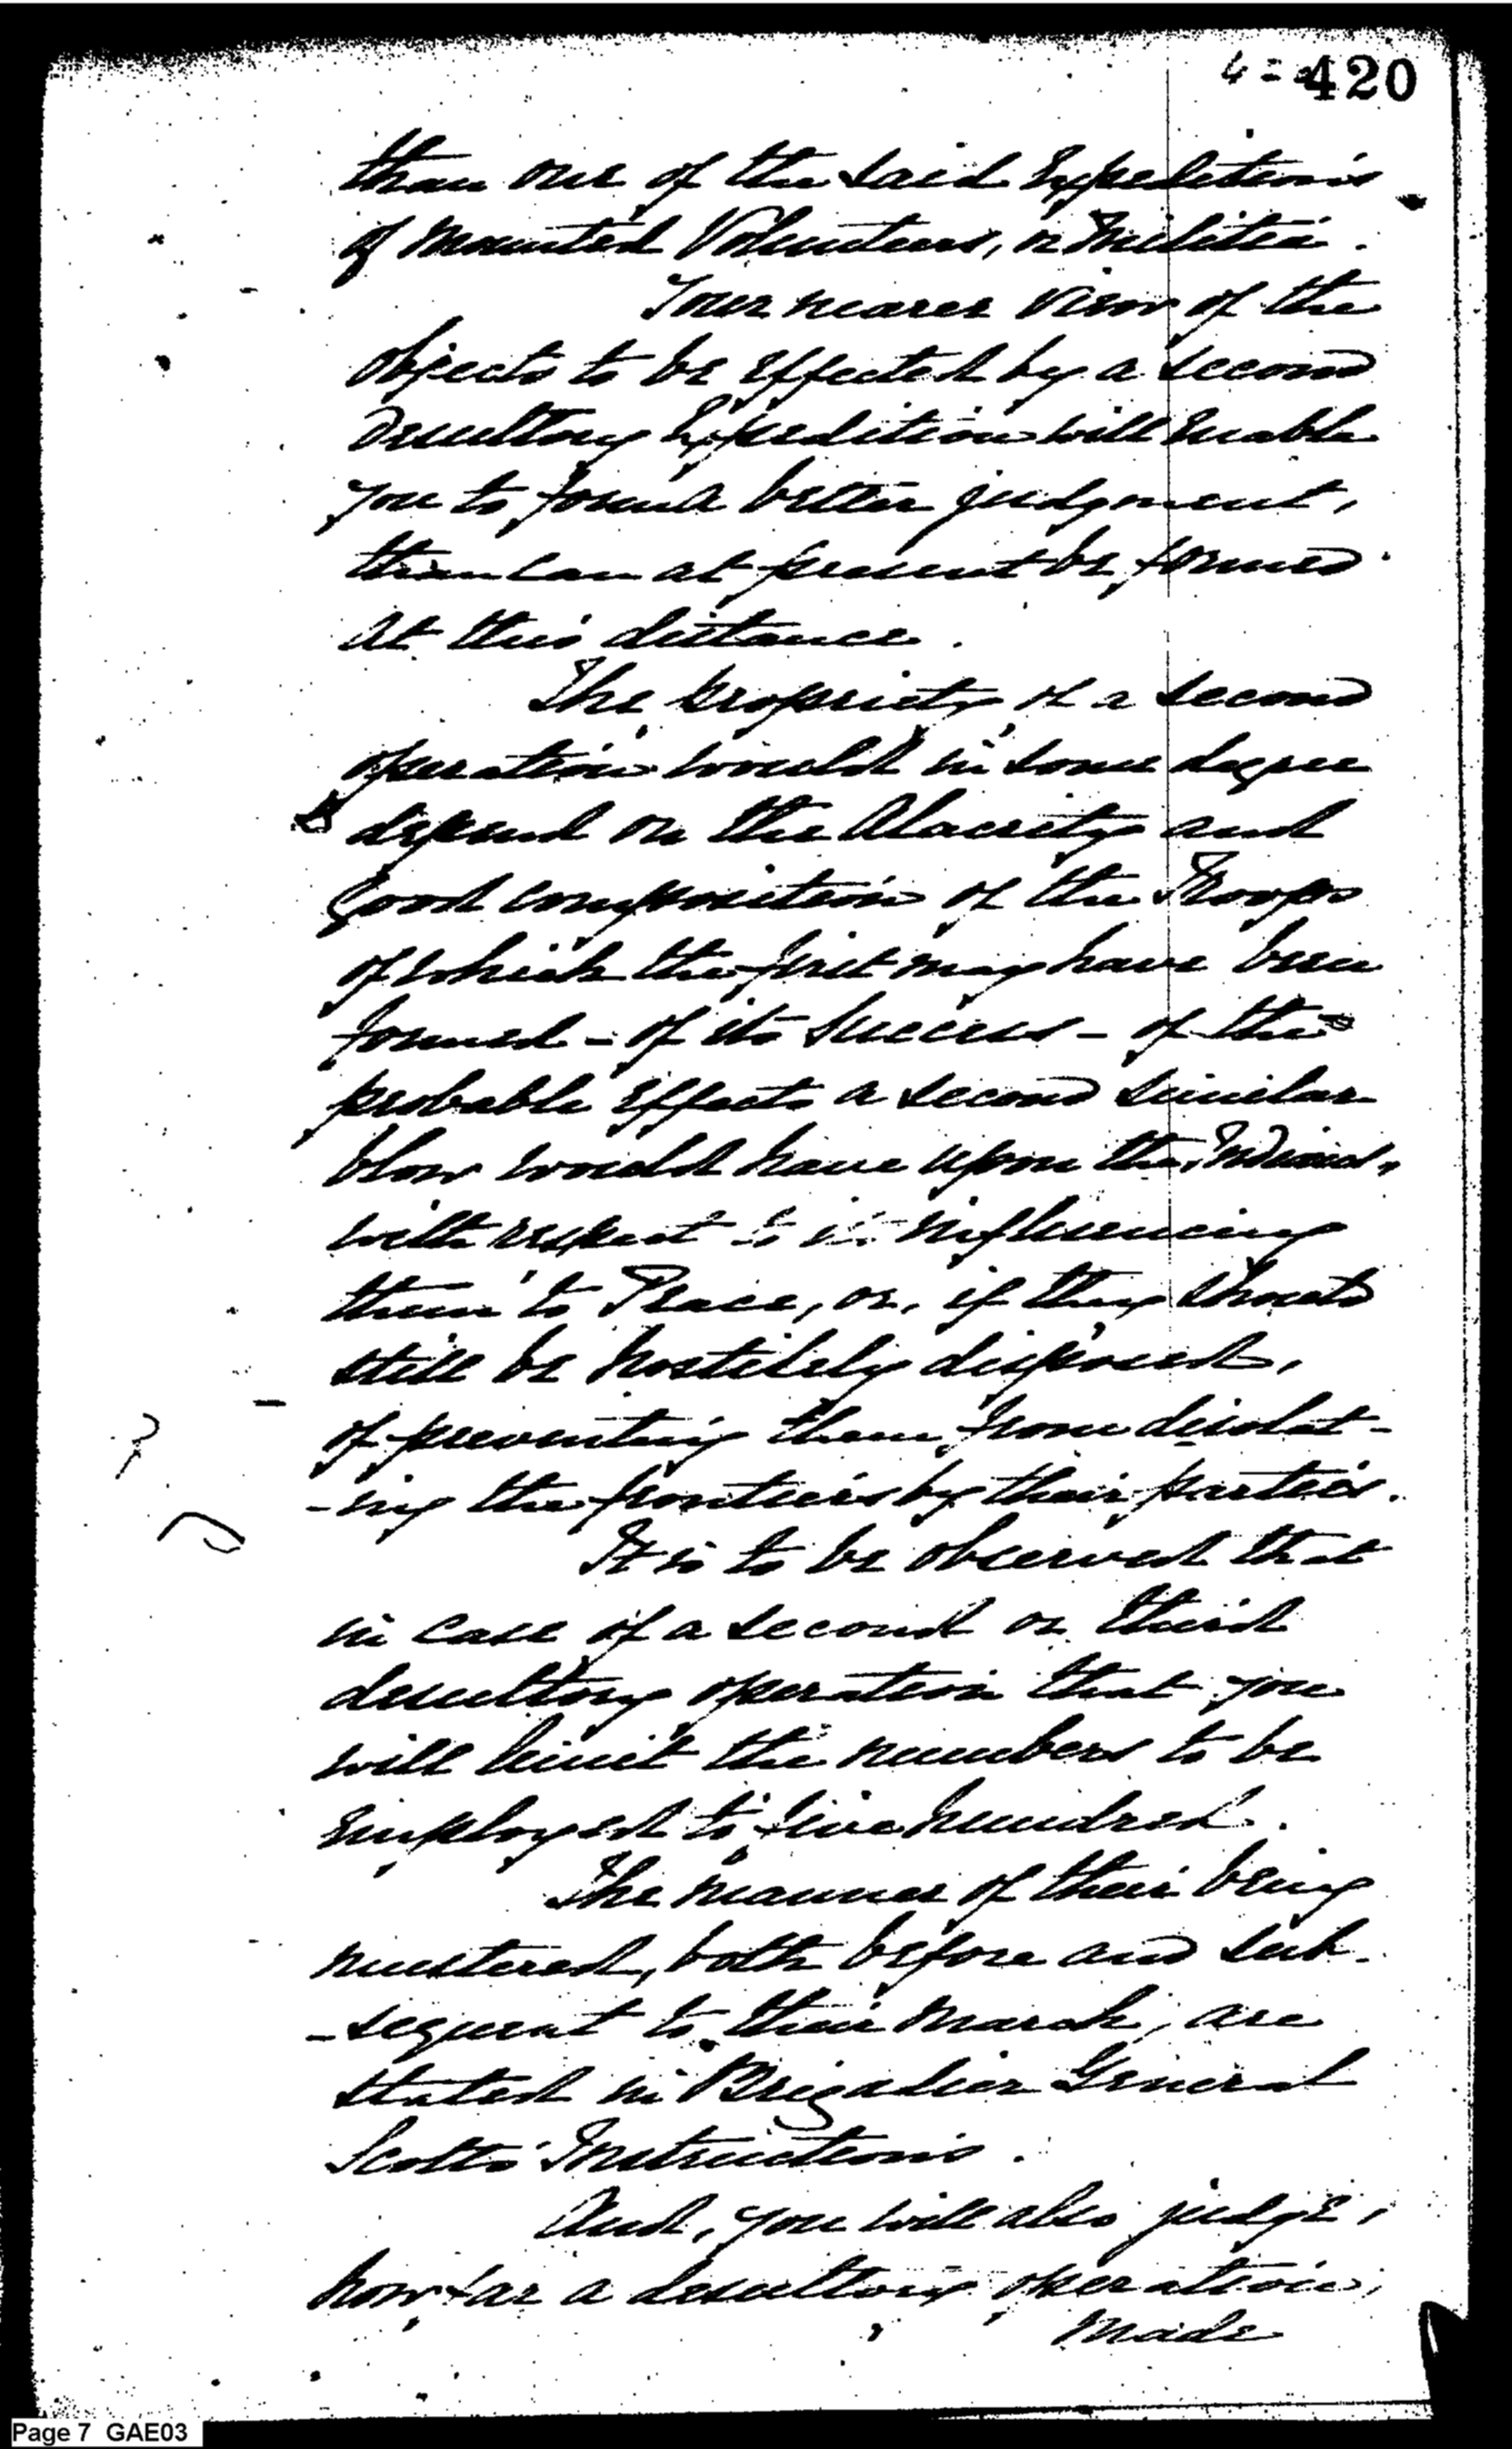 6 = 420
than one of the said Expeditions
of mounted Volunteers, or Militia.
Your nearer view of the
objects to be effected by a second
Desultory Expedition will enable
you to form a better judgment,
than can at present be formed
at this distance.
The propriety of a second
operation would in some degree
depend on the Alacrity and
good composition of the Troops
of which the first may have been
formed - of its success - of the
probable effects a second similar
blow would have upon the Indians,
with respect to its influencing
them to Peace, or, if they should
still be hostilely disposed,
of preventing them from desolat-
-ing the frontiers by their parties.
It is to be observed that
in case of a second or third
desultory operation that you
will limit the numbers to be
employed to five hundred.
The manner of their being
mustered, both before and sub-
-sequent to their march, are
stated in Brigadier General
Scotts Instructions.
And, you will also judge,
how far a desultory operation,
made
Page 7 GAE03